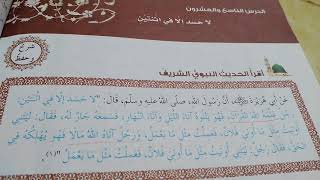 الدرس التاسع والعشرون
لا حسد إلا في اثنتين
شرح وحفظ
أقرأ الحديث النبوي الشريف
عن أبي هريرة رضي الله عنه، أن رسول الله، صلى الله عليه وسلم، قال: "لا حسد إلا في اثنتين،
رجل علمه الله القرآن، فهو يتلوه آناء الليل، وآناء النهار، فسمعه جار له، فقال: ليتني
أوتيت مثل ما أوتي فلان، فعملت مثل ما يعمل، ورجل آتاه الله مالا فهو يهلكه في
الحق، فقال رجل: ليتني أوتيت مثل ما أوتي فلان، فعملت مثل ما يعمل" (١)